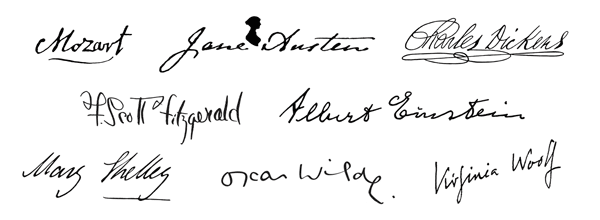 Mozart Jane Austen Charles Dickens
F. Scott Fitzgerald Albert Einstein
Mary Shelley Oscar Wilde. Virginia Woolf